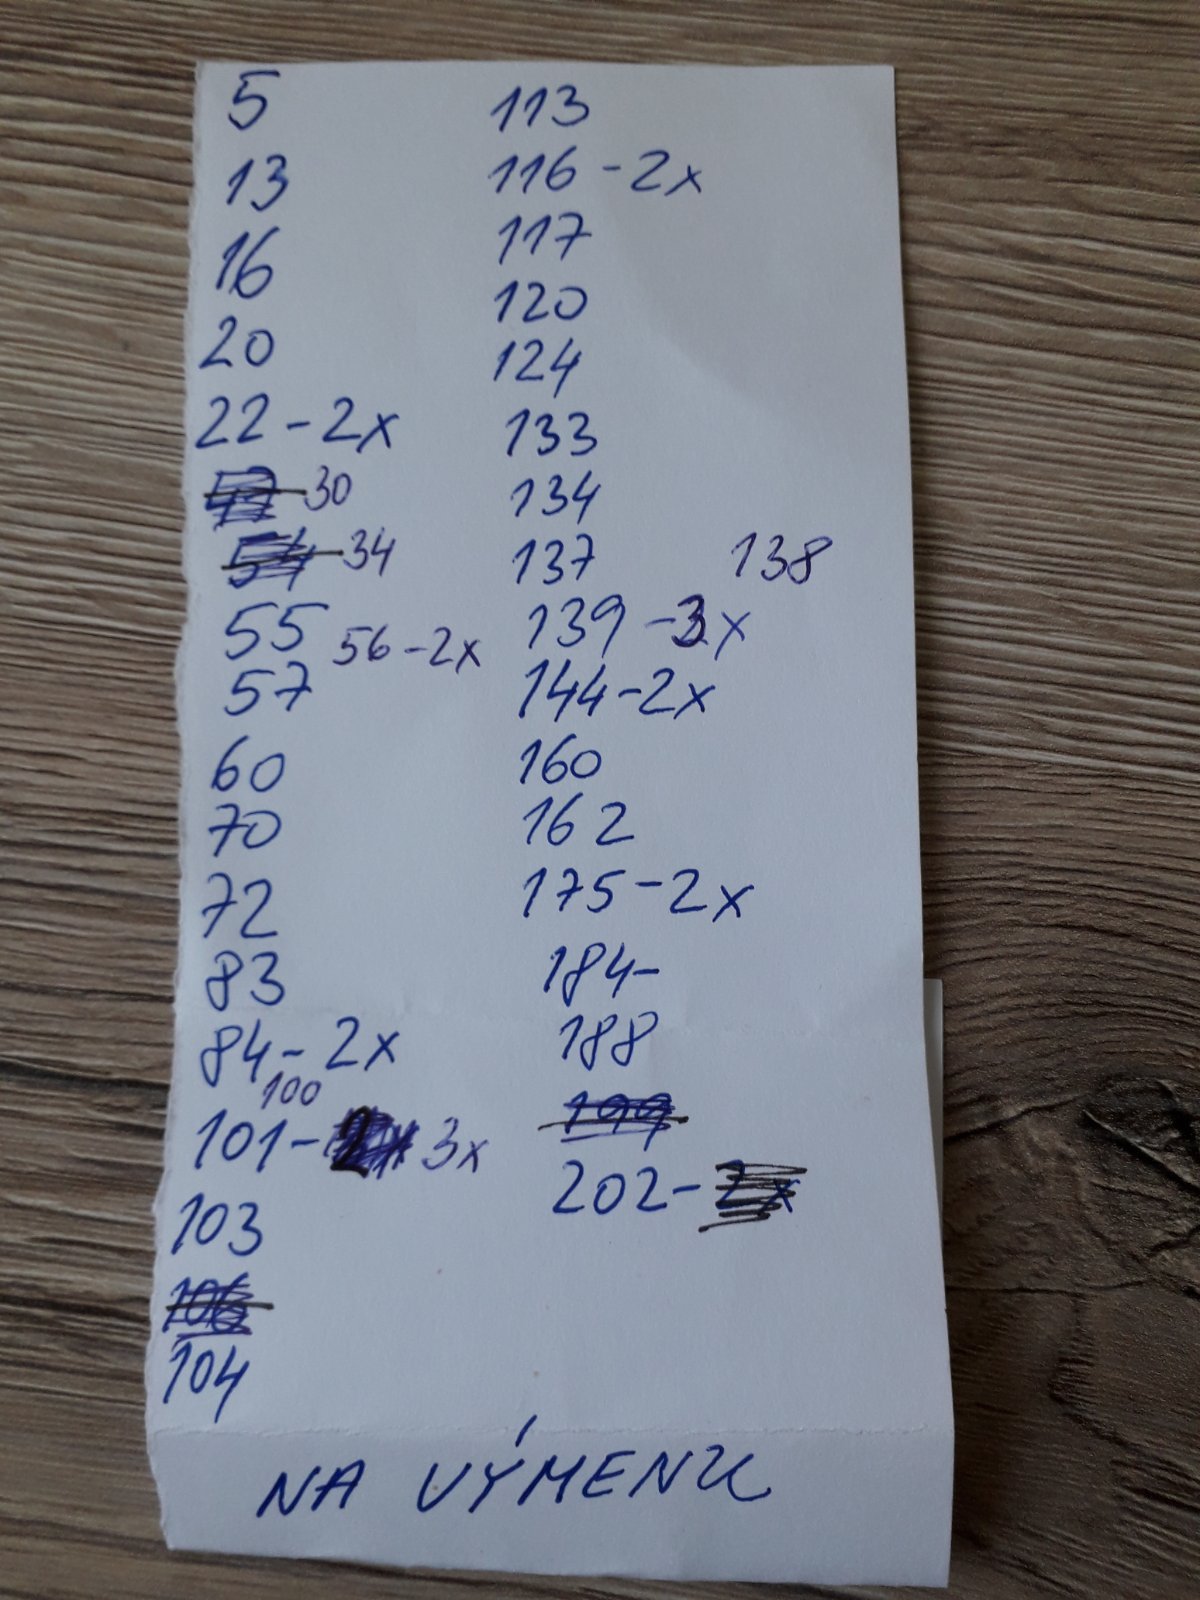 5
13
16
20
22 - 2x
30
54 34
55
56 - 2x
57
60
70
72
83
84 - 2x
100
101 - 3x
103
106
104
113
116 - 2x
117
120
124
133
134
137 138
139 - 3x
144 - 2x
160
162
175 - 2x
184 -
188
199
202 - 2x
NA VÝMENU